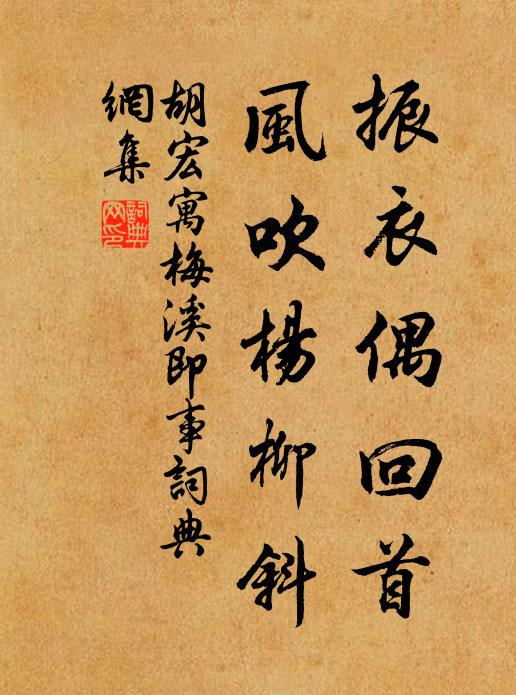 振衣偶回首
風吹楊柳斜
胡宏寓梅溪即事詞典
網集
詞典
网印